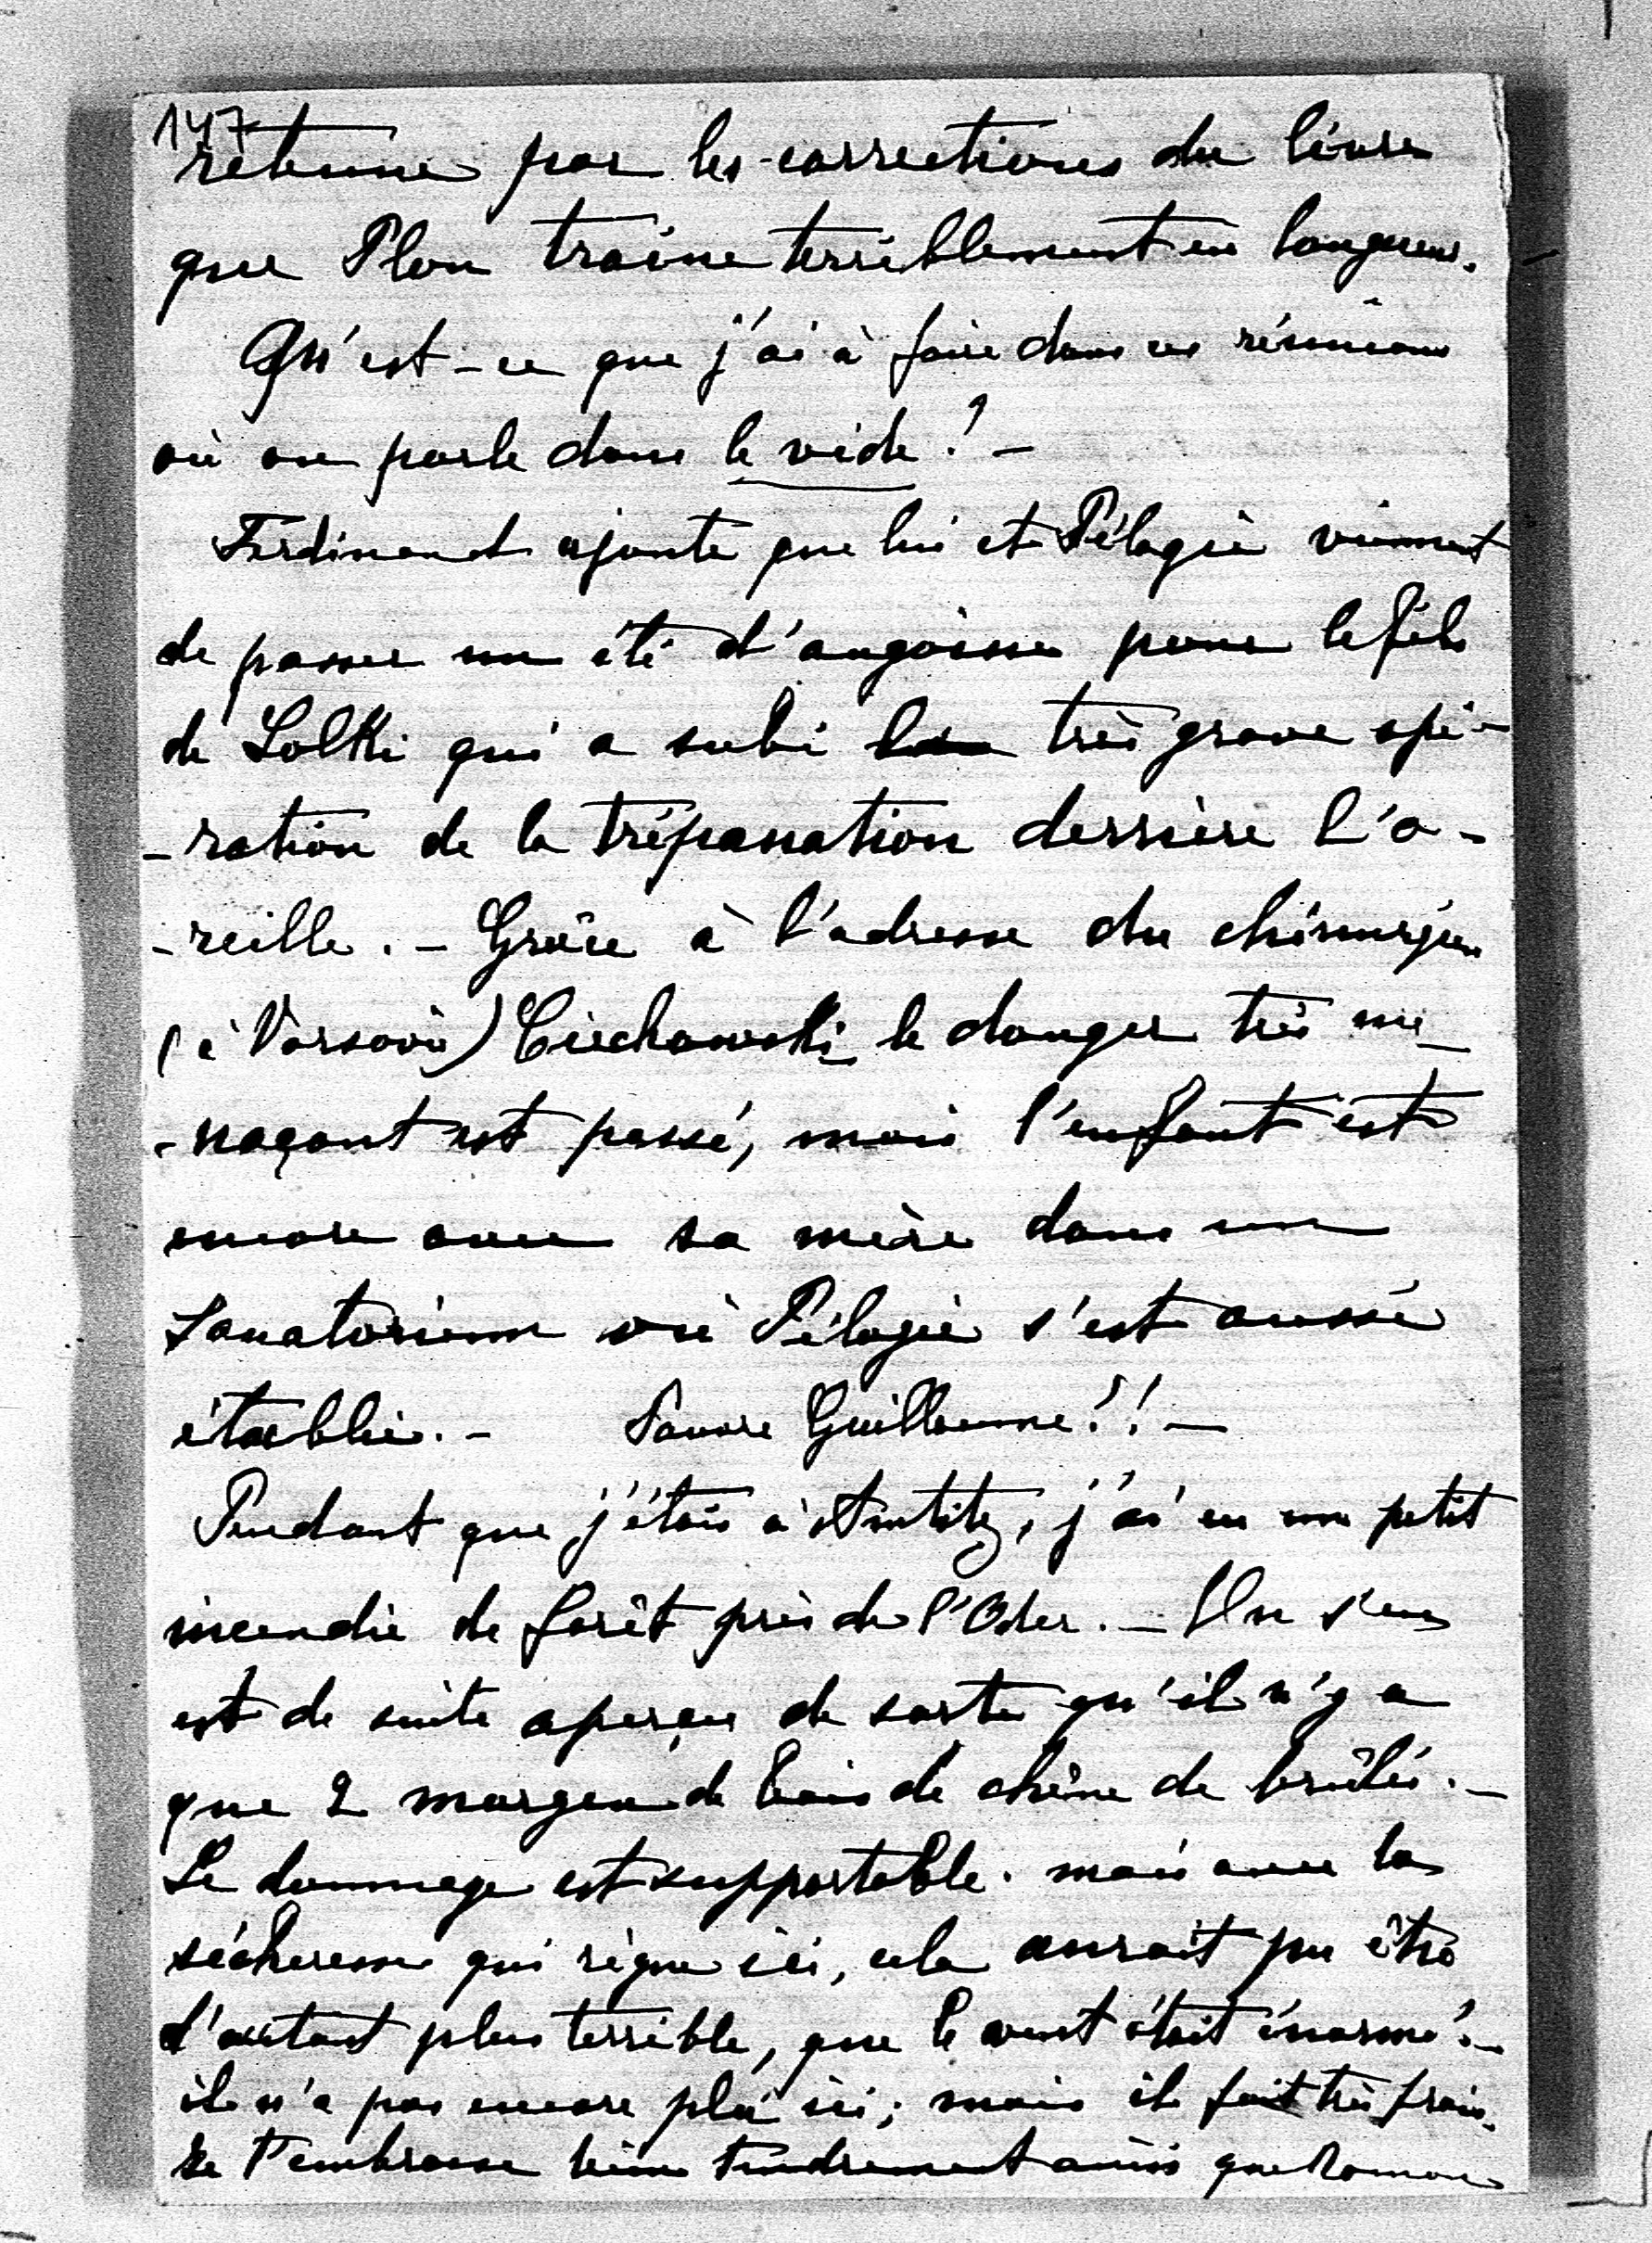 147
retenue par les corrections du livre
que Plon traîne terriblement en longueur.
Qu'est-ce que j'ai à faire dans ces réunions
où on parle dans le vide? -
Ferdinand ajoute que lui et Pélagie viennent
de passer un été d'angoisse pour le fils
de Lolki qui a subi très grave opé-
-ration de la trépanation derrière l'o-
-reille. - Grâce à l'adresse du chirurgien
(à Varsovie) Ciechowski le danger très me-
-naçant est passé, mais l'enfant est
encore avec sa mère dans un
Sanatorium où Pélagie s'est aussi
établie. - Pauvre Guillaume!! -
Pendant que j'étais à , j'ai eu un petit
incendie de forêt près de l'Oder. - On s'en
est de suite aperçu de sorte qu'il n'y a
que 2 morgen de bois de chêne de brûlés. -
Le dommage est supportable. mais avec la
sécheresse qui règne ici, cela aurait pu être
d'autant plus terrible, que le vent était énorme. -
il n'a pas encore plu ici; mais il fait très frais.
Je t'embrasse bien tendrement ainsi que Roman